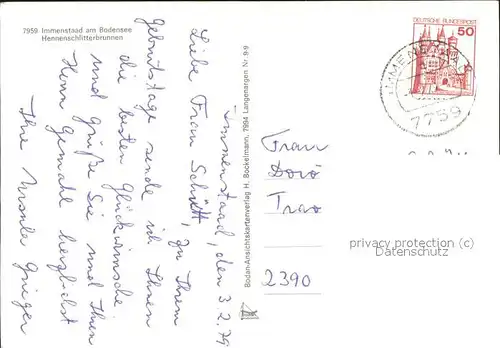 7959 Immenstaad am Bodensee
Hennenschlitterbrunnen
Immenstaad, den 3.2.79
Liebe Frau Schütt, zu Ihrem
Geburtstage sende ich Ihnen
die besten Glückwünsche
und grüße Sie und Ihren
Herrn Gemahl herzlichst
Ihre Ursula
Bodan-Ansichtskartenverlag H. Bockelmann, 7994 Langenargen Nr. 9-9
DEUTSCHE BUNDESPOST
50
IMMENSTAAD
7759
Frau
Doro
Trao
2390
privacy protection (c)
Datenschutz